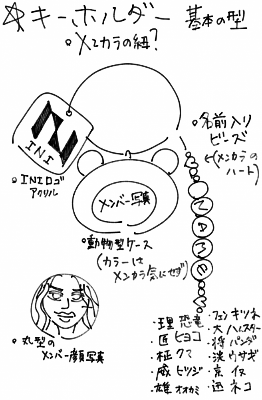 ☆キーホルダー 基本の型
○メンカラの紐?
INI
○INIロゴ
アクリル
○名前入り
ビーズ
(メンカラの
ハート)
メンバー写真
○動物型ケース
(カラーは
メンカラ気にせず)
○丸型の
メンバー顔写真
・フェン キツネ
・理 恐竜 ・大 ハムスター
・匠 ヒヨコ ・将 パンダ
・柾 クマ ・洸 ウサギ
・威 ヒツジ ・京 イヌ
・雄 オオカミ ・迅 ネコ